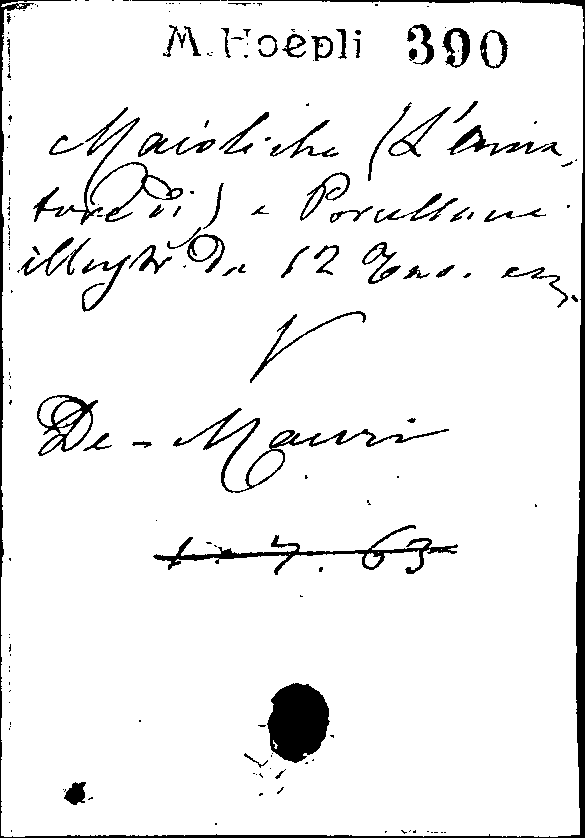 M. Hoepli 390
Maioliche (L'ama-
tore di) e Porcellane
illustr. da 12 Tav. ecc.
V
De-Mauri
1.7.63